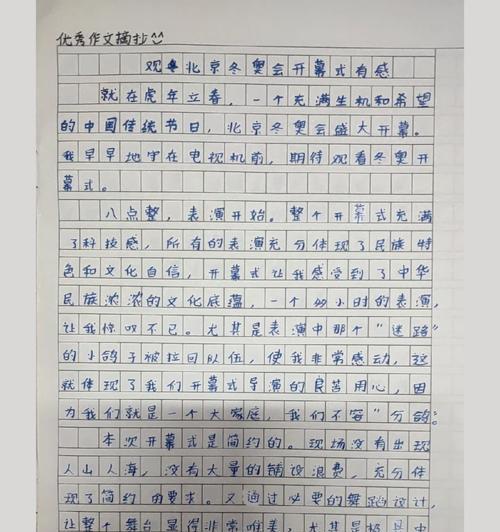 优秀作文摘抄
观北京冬奥会开幕式有感
就在虎年立春，一个充满生机和希望
的中国传统节日，北京冬奥会盛大开幕。
我早早地守在电视机前，期待观看冬奥开
幕式。
八点整，表演开始。整个开幕式充满
了科技感，所有的表演充分体现了民族特
色和文化自信，开幕式让我感受到了中华
民族浓浓的文化底蕴，一个多小时的表演，
让我惊叹不已。尤其是表演中那个“迷路”
的小鸽子被拉回队伍，使我非常感动，这
就体现了我们开幕式导演的良苦用心，因
为我们就是一个大家庭，我们不容“分鸽”。
本次开幕式是简约的。现场没有出现
人山人海，没有大量的铺设浪费，充分体
现了简约的要求。又通过必要的舞蹈设计，
让整个舞台显得非常唯美，尤其是极具中